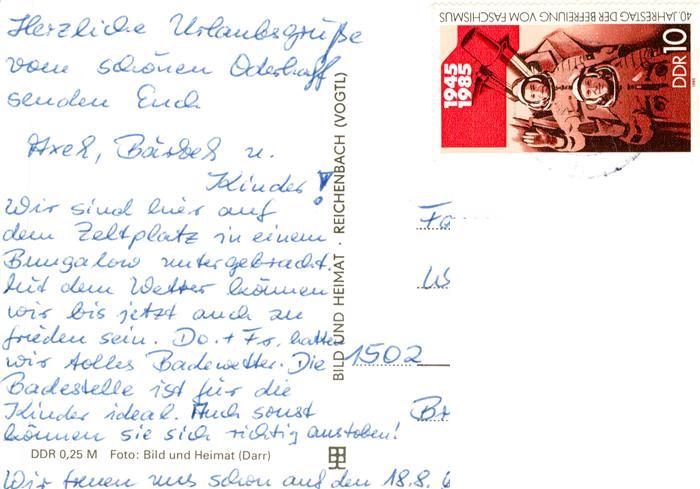 Herzliche Urlaubsgrüße
vom schönen Oderhaff
senden Euch
Axel, Bärbel u.
Kinder!
Wir sind hier auf
dem Zeltplatz in einem
Bungalow untergebracht.
Mit dem Wetter können
wir bis jetzt auch zu
frieden sein. Do. + Fr. hatten
wir tolles Badewetter. Die
Badestelle ist für die
Kinder ideal. Auch sonst
können sie sich richtig austoben!
DDR 0,25 M Foto: Bild und Heimat (Darr)
Wir freuen uns schon auf den 18.8.
BILD UND HEIMAT · REICHENBACH (VOGTL)
40. JAHRESTAG DER BEFREIUNG VOM FASCHISMUS
1945
1985
DDR 10
Fa
1502